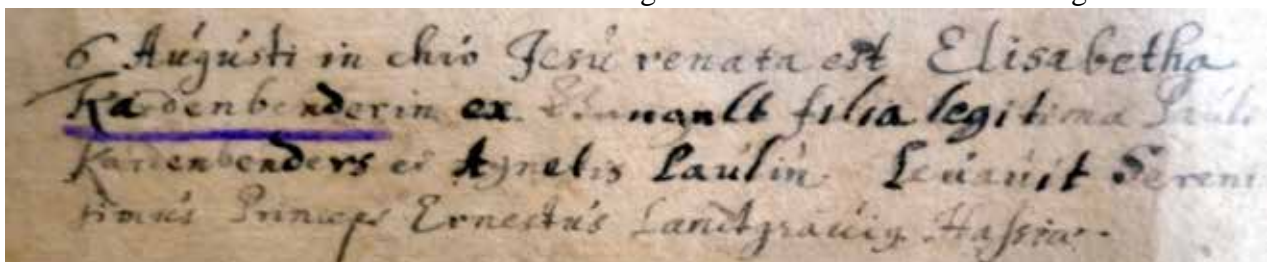 6 Augusti in chro Jesu renata est Elisabetha
Kardenbenderin ex filia legitima Pauli
Kardenbenders et Agnetis Paulin. Levavit Sereni
simus Princeps Ernestus Landtgravig Hassiae.